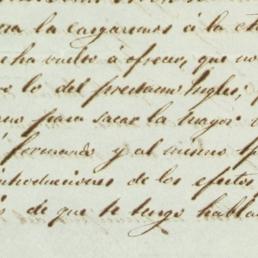 la cargaremos á la
ha vuelto á ofrecer, que no
lo del prestamo Ingles,
para sacar la mayor
fernando y al mismo
introducciones de los efectos
de que te tengo habla